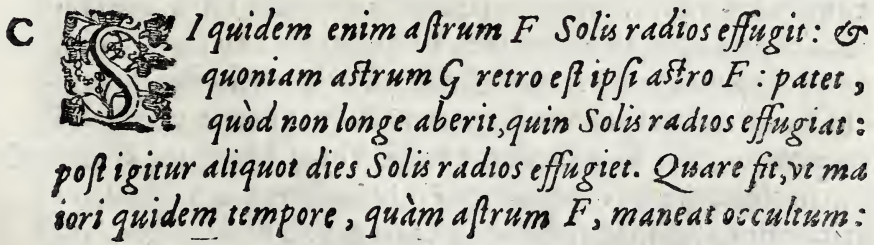 C SI quidem enim astrum F Solis radios effugit: &
quoniam astrum G retro est ipsi astro F : patet ,
quòd non longe aberit, quin Solis radios effugiat :
post igitur aliquot dies Solis radios effugiet. Quare fit, vt ma
iori quidem tempore , quàm astrum F, maneat occultum :